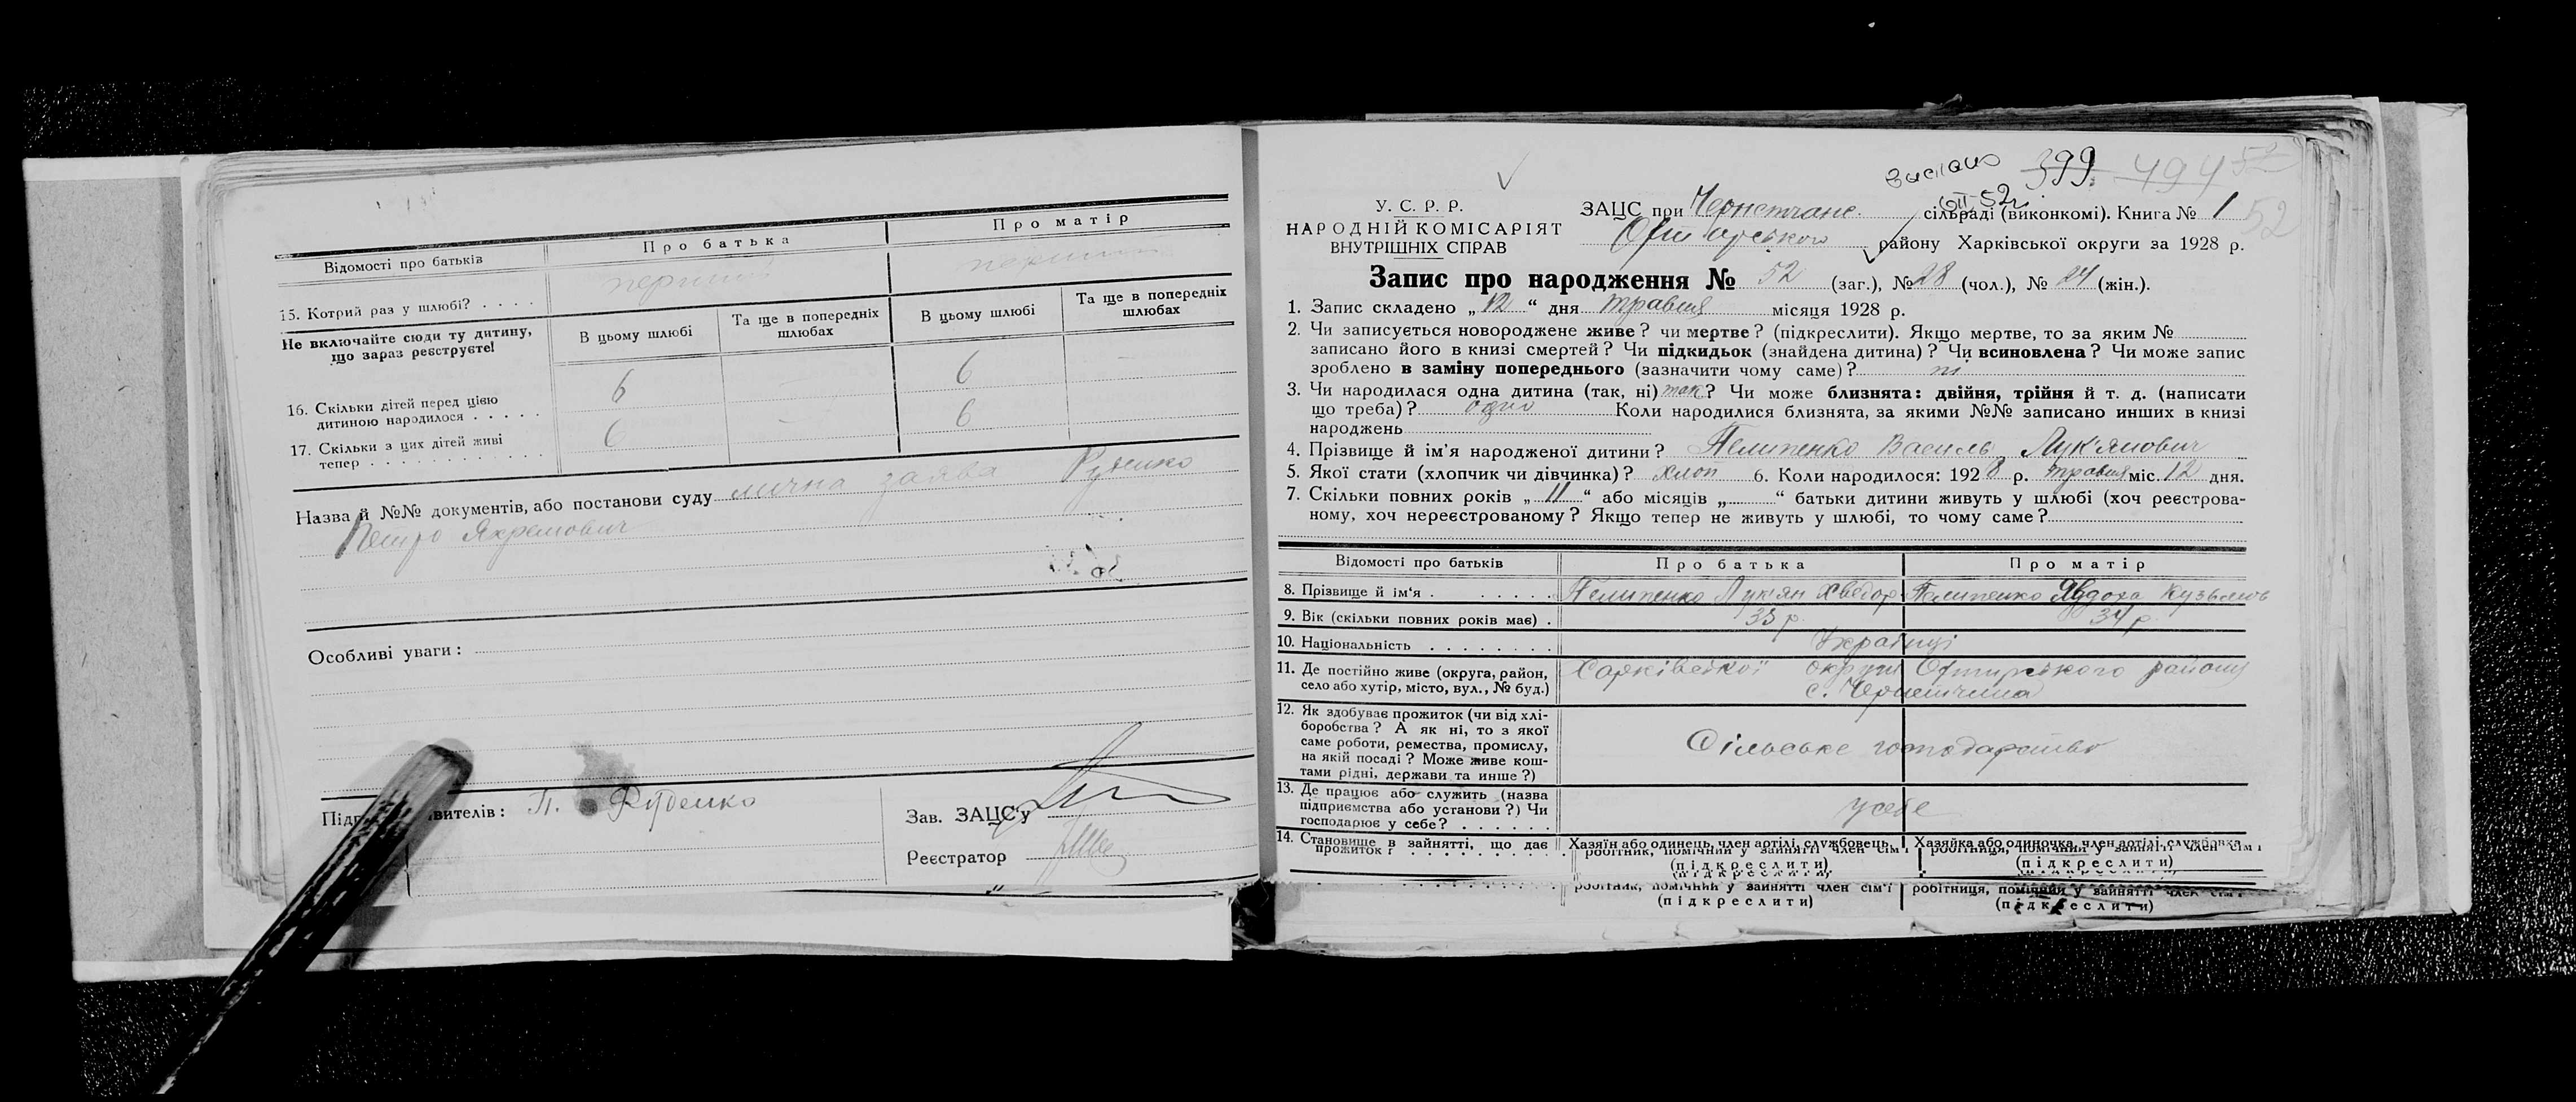 Відомості про батьків
Про батька
Про матір
15. Котрий раз у шлюбі? . . . .
перший
перший
Не включайте сюди ту дитину,
що зараз реєструєте!
В цьому шлюбі
Та ще в попередніх
шлюбах
В цьому шлюбі
Та ще в попередніх
шлюбах
16. Скільки дітей перед цією
дитиною народилося . . . . .
6
-
6
-
17. Скільки з цих дітей живі
тепер . . . . . . . . . . . .
6
-
6
Назва й №№ документів, або постанови суду лична заява Руденко
Петро Яхремович
Особливі уваги:
вителів: П. Руденко
Зав. ЗАЦС'у
Реєстратор
399 494 52
52
У. С. Р. Р.
НАРОДНІЙ КОМІСАРІЯТ
ВНУТРІШНІХ СПРАВ
ЗАЦС при сільраді (виконкомі). Книга № 1
району Харківської округи за 1928 р.
Запис про народження № 52 (заг.), № 28 (чол.), № 24 (жін.).
1. Запис складено „12“ дня травня місяця 1928 р.
2. Чи записується новороджене живе? чи мертве? (підкреслити). Якщо мертве, то за яким №
записано його в книзі смертей? Чи підкидьок (знайдена дитина)? Чи всиновлена? Чи може запис
зроблено в заміну попереднього (зазначити чому саме)? ні
3. Чи народилася одна дитина (так, ні) так? Чи може близнята: двійня, трійня й т. д. (написати
що треба)? одно Коли народилися близнята, за якими №№ записано инших в книзі
народжень
4. Прізвище й ім'я народженої дитини? Пелипенко Василь Лук'янович
5. Якої стати (хлопчик чи дівчинка)? хлоп 6. Коли народилося: 1928 р. травня міс. 12 дня.
7. Скільки повних років „11“ або місяців „ “ батьки дитини живуть у шлюбі (хоч реєстрова-
ному, хоч нереєстрованому? Якщо тепер не живуть у шлюбі, то чому саме?
Відомості про батьків
Про батька
Про матір
8. Прізвище й ім'я . . . . . . Пелипенко Лук'ян Хведор Пелипенко Явдоха Кузьмов
9. Вік (скільки повних років має) . 33 р. 34 р.
10. Національність . . . . . . . . Українці
11. Де постійно живе (округа, район,
село або хутір, місто, вул., № буд.)
Харківської округи Охтирського району
с. Чернетчина
12. Як здобуває прожиток (чи від хлі-
боробства? А як ні, то з якої
саме роботи, ремества, промислу,
на якій посаді? Може живе кош-
тами рідні, держави та инше?)
Сільське господарство
13. Де працює або служить (назва
підприємства або установи?) Чи
господарює у себе? . . . . . .
у себе
14. Становище в зайнятті, що дає
прожиток? . . . . . . . . .
Хазяїн або одинець, член артілі, службовець,
робітник, помічний у зайнятті член сім'ї
(підкреслити)
Хазяйка або одиночка, член артілі, службовка,
робітниця, помічний у зайнятті член сім'ї
(підкреслити)
робітник, помічний у зайнятті член сім'ї
(підкреслити)
робітниця, помічний у зайнятті член сім'ї
(підкреслити)